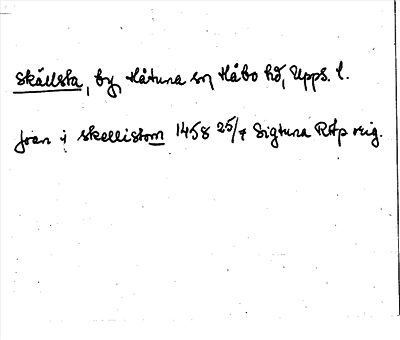 Skällsta, by, Håtuna sn, Håbo hd, Upps. l.
joan i skellistom 1458 25/7 Sigtuna RAp orig.